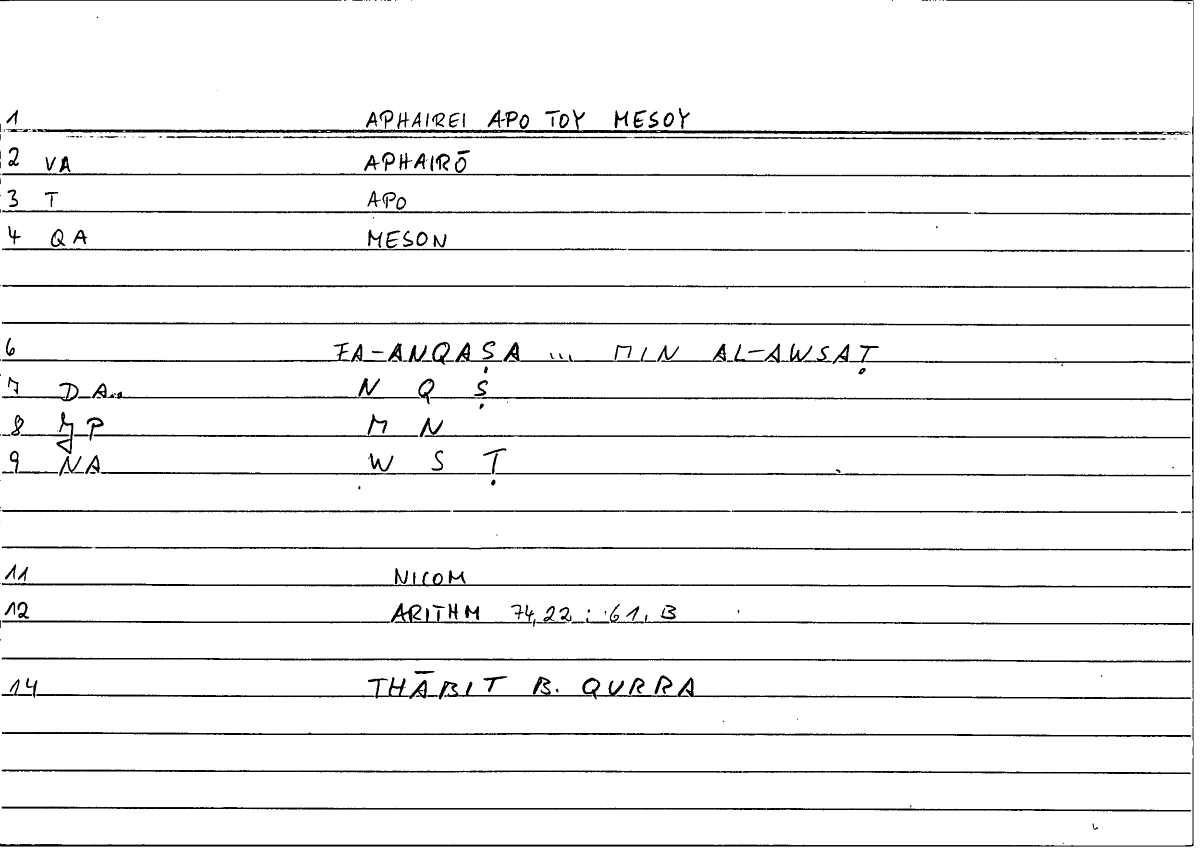 1 APHAIREI APO TOY MESOY
2 VA APHAIRŌ
3 T APO
4 QA MESON
6 FA-ANQAṢA ... MIN AL-AWSAṬ
7 DA.. N Q Ṣ
8 P M N
9 NA W S Ṭ
11 NICOM
12 ARITHM 74,22 : 61,
14 THĀBIT B. QURRA